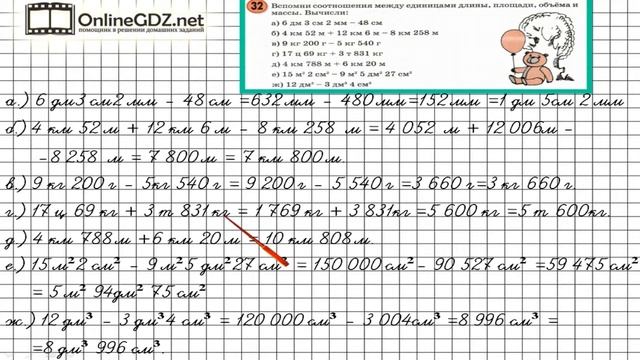 OnlineGDZ.net
помощник в решении домашних заданий
32 Вспомни соотношения между единицами длины, площади, объёма и
массы. Вычисли:
а) 6 дм 3 см 2 мм – 48 см
б) 4 км 52 м + 12 км 6 м – 8 км 258 м
в) 9 кг 200 г – 5 кг 540 г
г) 17 ц 69 кг + 3 т 831 кг
д) 4 км 788 м + 6 км 20 м
е) 15 м² 2 см² – 9 м² 5 дм² 27 см²
ж) 12 дм³ – 3 дм³ 4 см³
а.) 6 дм3 см2 мм – 48 см =632 мм – 480 мм=152 мм =1 дм 5см 2 мм
б.) 4 км 52 м + 12 км 6 м – 8 км 258 м = 4 052 м + 12 006м –
–8 258 м = 7 800 м = 7 км 800 м.
в.) 9 кг 200 г – 5кг 540 г = 9 200 г – 5 540 г =3 660 г=3 кг 660 г.
г.) 17 ц 69 кг + 3 т 831 кг = 1 769 кг + 3 831кг =5 600 кг =5 т 600кг.
д.) 4 км 788 м +6 км 20 м = 10 км 808 м.
е.) 15 м²2 см² – 9 м²5 дм²27 см² = 150 000 см² – 90 527 см² =59 475 см²
= 5 м² 94дм² 75 см²
ж.) 12 дм³ – 3 дм³4 см³ = 120 000 см³ – 3 004см³ =8 996 см³ =
=8 дм³ 996 см³.